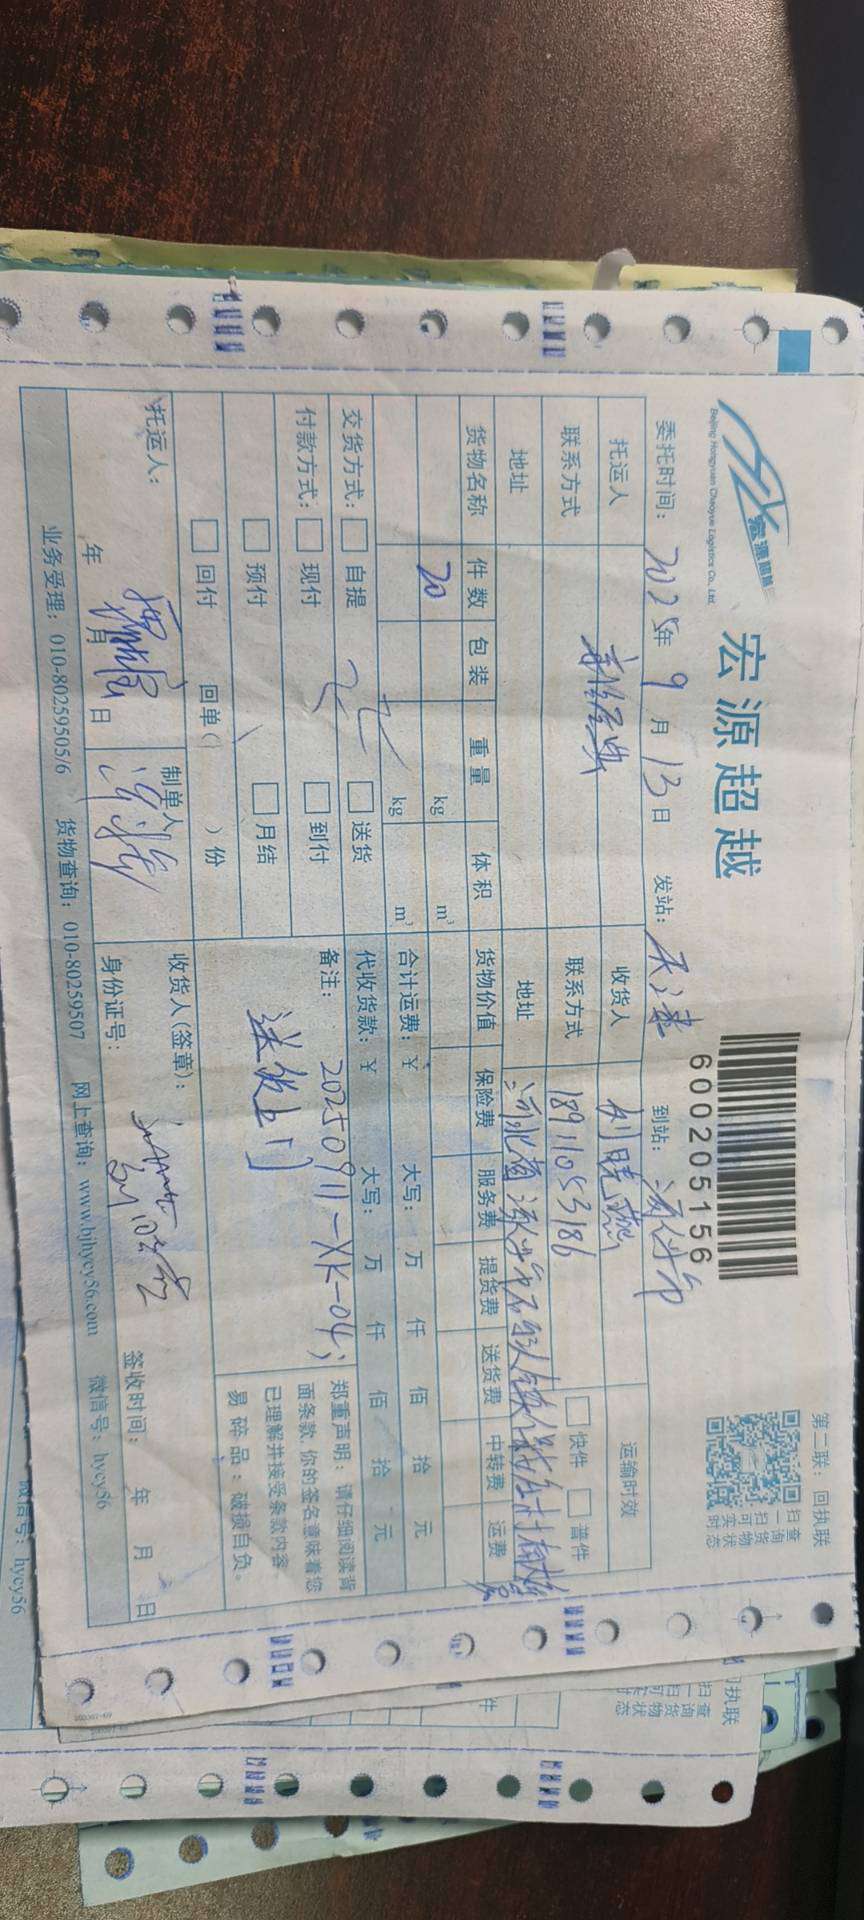 宏源超越
宏源超越
Beijing Hongyuan Chaoyue Logistics Co., Ltd.
600205156
第二联：回执联
扫一扫可实时
查询货物状态
委托时间：2025年9月13日 发站：天津 到站：涿州市
托运人 收货人 刘晓燕 运输时效
联系方式 联系方式 18911053186 快件 普件
地址 地址 河北省
货物名称 件数 包装 重量 体积 货物价值 保险费 服务费 提货费 送货费 中转费 运费
20 kg m³
kg m³ 合计运费：¥ 大写： 万 仟 佰 拾 元
代收货款：¥ 大写： 万 仟 佰 拾 元
交货方式： 自提 送货
付款方式： 现付 到付
预付 月结
回付 回单( )份
备注： 20250911-XK-04;
送货上门
郑重声明：请仔细阅读背
面条款,你的签名意味着您
已理解并接受条款内容。
易碎品：破损自负。
托运人： 制单人 收货人(签章)：
年 月 日 身份证号： 签收时间： 年 月 日
业务受理：010-80259505/6 货物查询：010-80259507 网上查询：www.bjhycy56.com 微信号：hycy56
回执联
扫一扫可实时
查询货物状态
微信号：hycy56